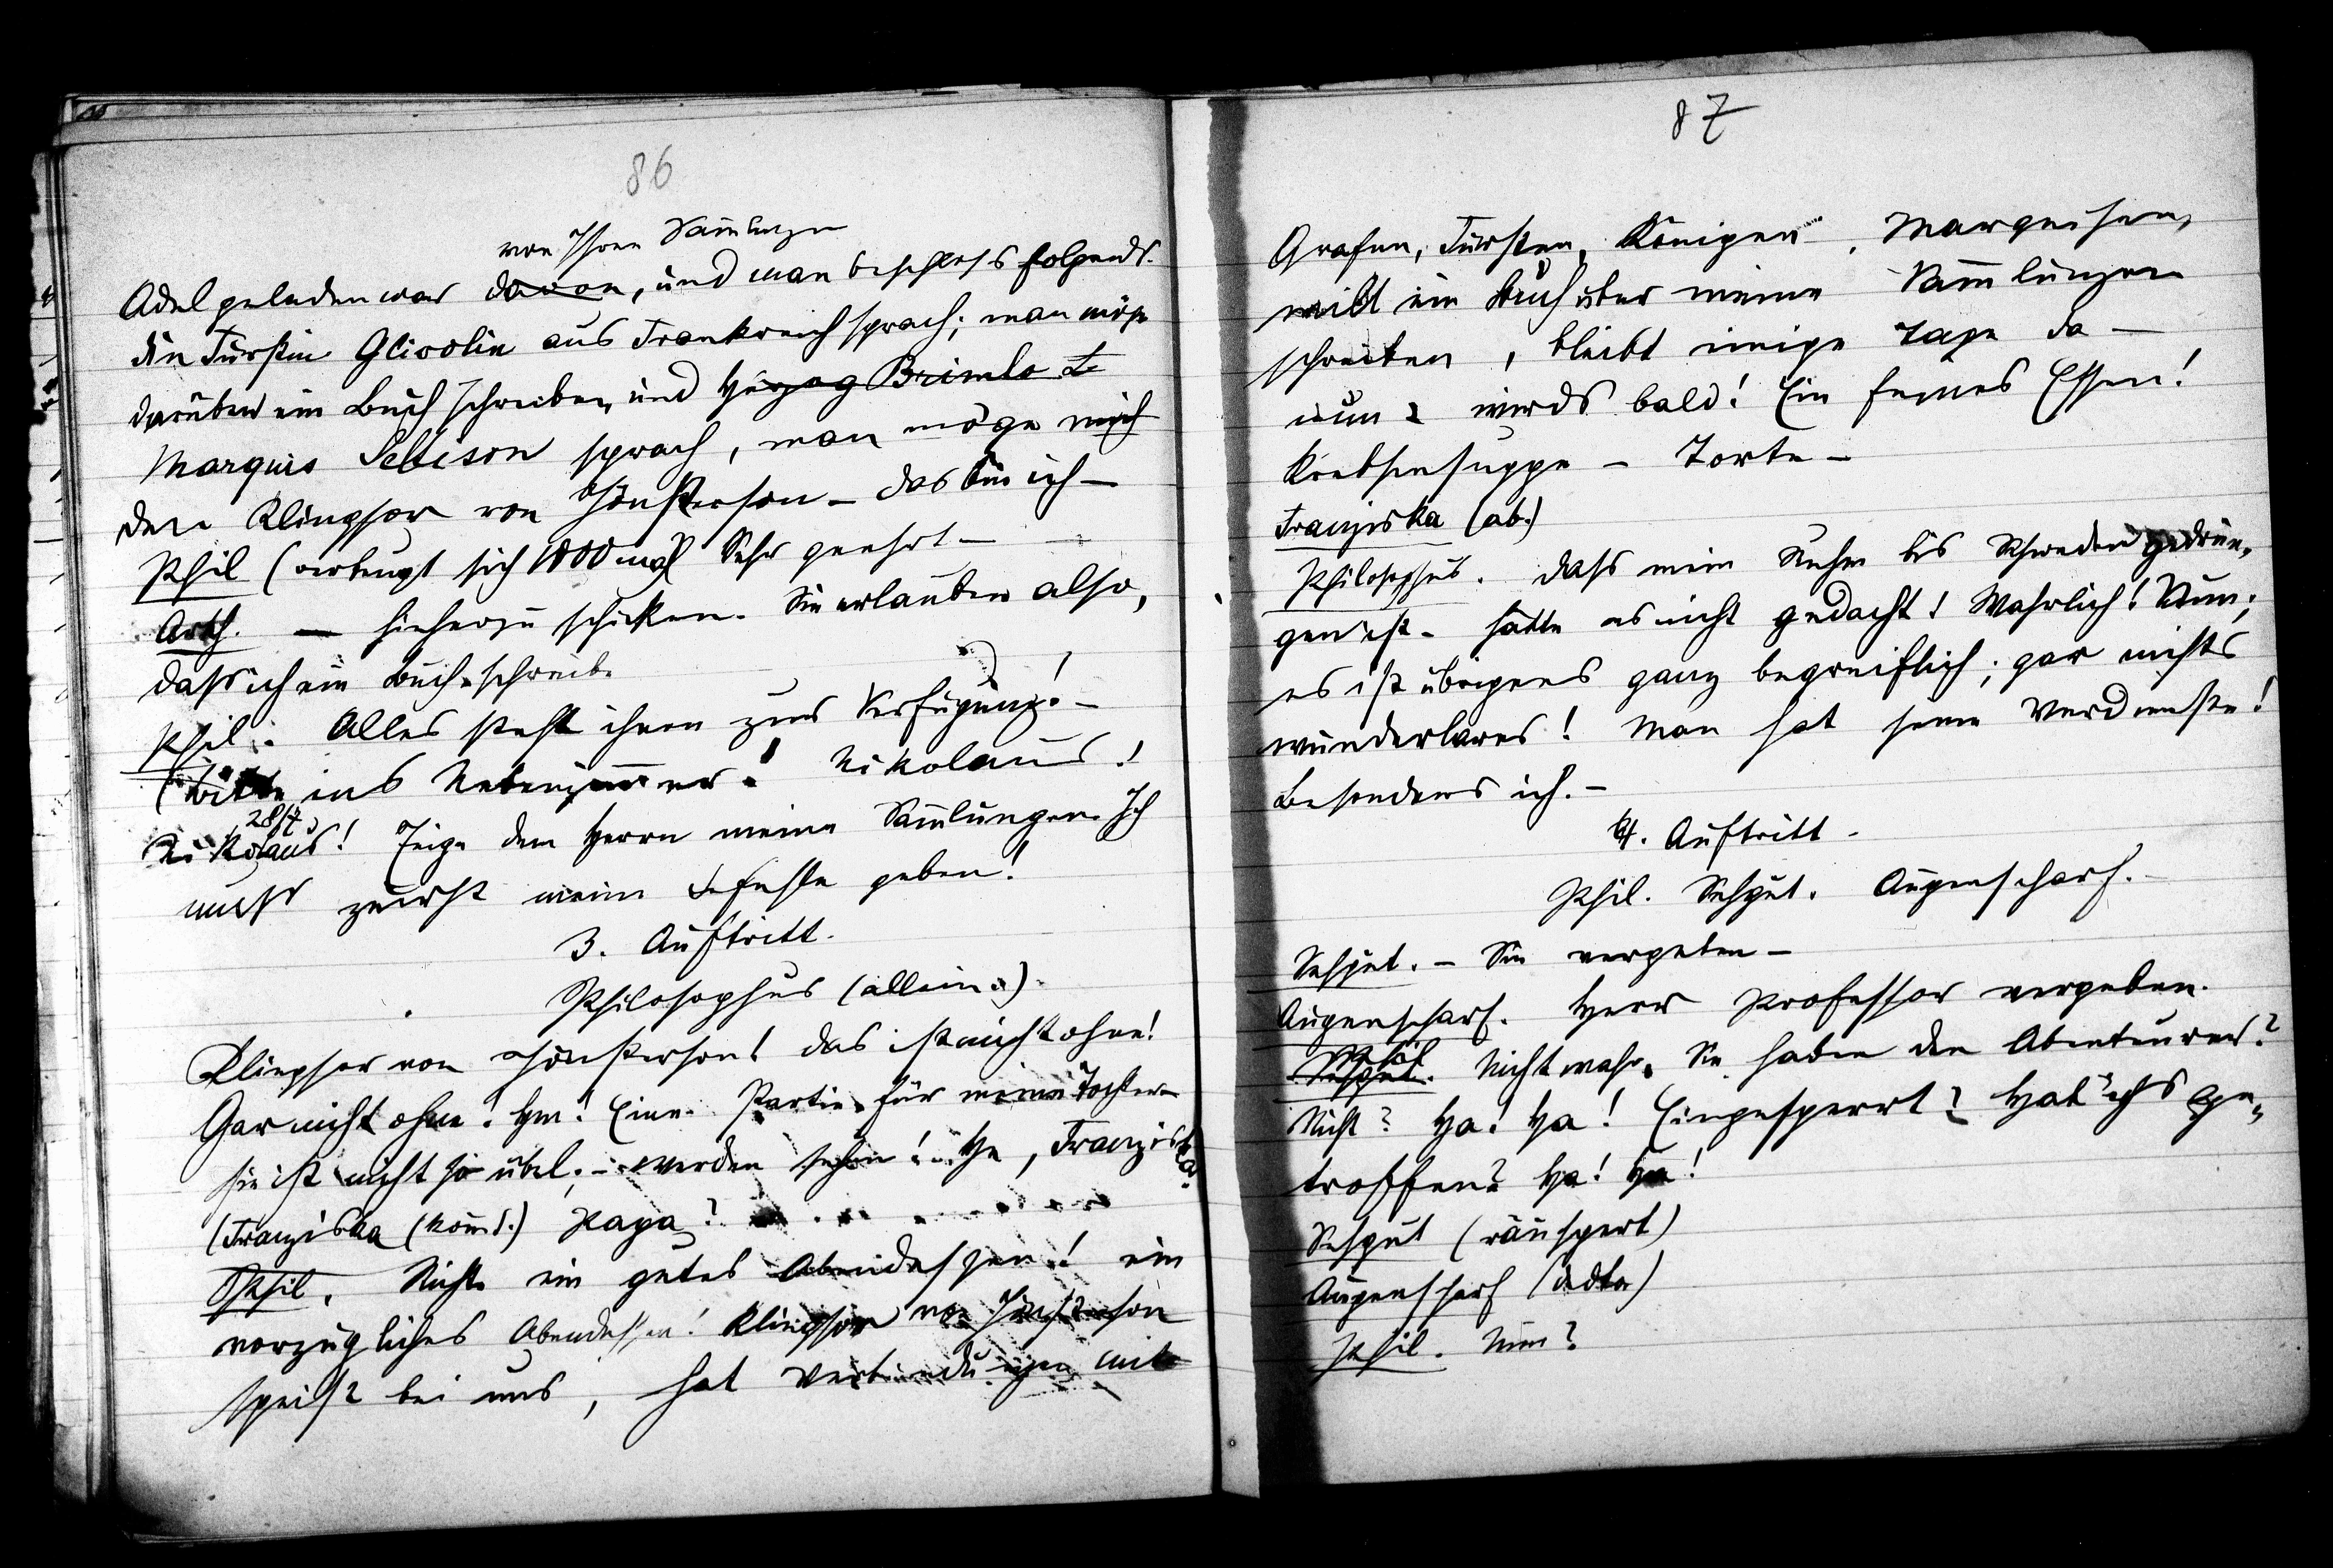 86
von Ihren Sammlungen
Adel geladen war davon, und man beschloss folgends.
die Fürstin Glivolin aus Frankreich sprach; man möge
darüber ein Buch schreiben, und Herzog Brimlo
Marquis Sebison sprach, man möge mich
den Klingsor von Hönsterson – das bin ich –
Phil (verbeugt sich 1000 mal) Sehr geehrt –
Arth. — hieherzu schicken. Sie erlauben also,
dass ich ein Buch schreibe
Phil: Alles steht ihnen zur Verfügung! –
(Bitte ins Nebenzimmer! Nikolaus!
Nikolaus! Zeige dem Herrn meine Sammlungen. Ich
muss zuerst meine Befehle geben!
3. Auftritt.
Philosophus (allein.)
Klingsor von Hönsterson! das ist nicht ohne!
Gar nicht ohne! hm! Eine Partie für meine Tochter
sie ist nicht so übel; – werden sehen! He, Franziska
(Franziska (kommt.) Papa?
Phil. Richte ein gutes Abendessen! ein
vorzügliches Abendessen! Klingsor von Hönsterson
speist bei uns, hat Verbindungen mit
87
Grafen, Fürsten, Königen, Marquisen,
will ein Buch über meine Sammlungen
schreiben, bleibt einige Tage da –
nun? wirds bald! Ein feines Essen!
Krebsensuppe – Torte –
Franziska (ab.)
Philosophus. dass mein Ruhm bis Schweden gedrun-
gen ist – hätte es nicht gedacht! Wahrlich! Nun;
es ist übrigens ganz begreiflich; gar nichts
wunderbares! Man hat seine Verdienste!
Besonders ich. –
4. Auftritt.
Phil. Sehgut. Augenscharf.
Sehgut. – Sie vergeben –
Augenscharf. Herr Professor vergeben.
Phil. Nicht wahr, Sie haben den Abenteurer?
Nicht? Ha! Ha! Eingesperrt? Hab' ichs ge-
troffen? Ha! Ha!
Sehgut (räuspert)
Augenscharf (detto)
Phil. Nun?